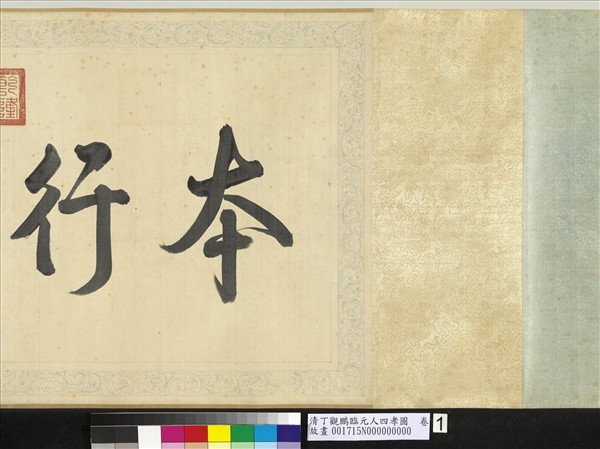 本行
清丁觀鵬臨元人四孝圖 卷
故畫 001715N000000000
1